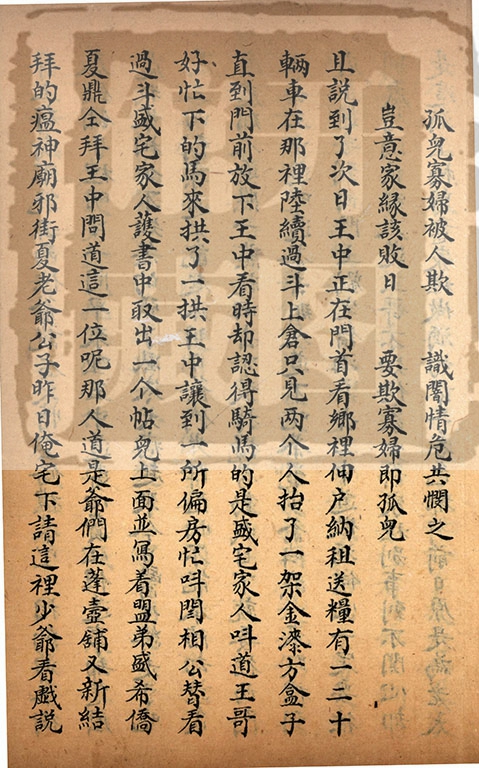 孤兒寡婦被人欺 識闇情危共憫之
豈意家緣該敗日 要欺寡婦即孤兒
且説到了次日王中正在門首看鄉裡佃户納租送糧有一二十
輛車在那裡陸續過斗上倉只見两个人抬了一架金漆方盒子
直到門前放下王中看時却認得騎馬的是盛宅家人呌道王哥
好忙下的馬來拱了一拱王中讓到一所偏房忙呌閆相公替看
過斗盛宅家人護書中取出一个帖兒上面並寫着盟弟盛希僑
夏鼎仝拜王中問道這一位呢那人道是爺們在蓬壺舖又新結
拜的瘟神廟邪街夏老爺公子昨日俺宅下請這裡少爺看戲説